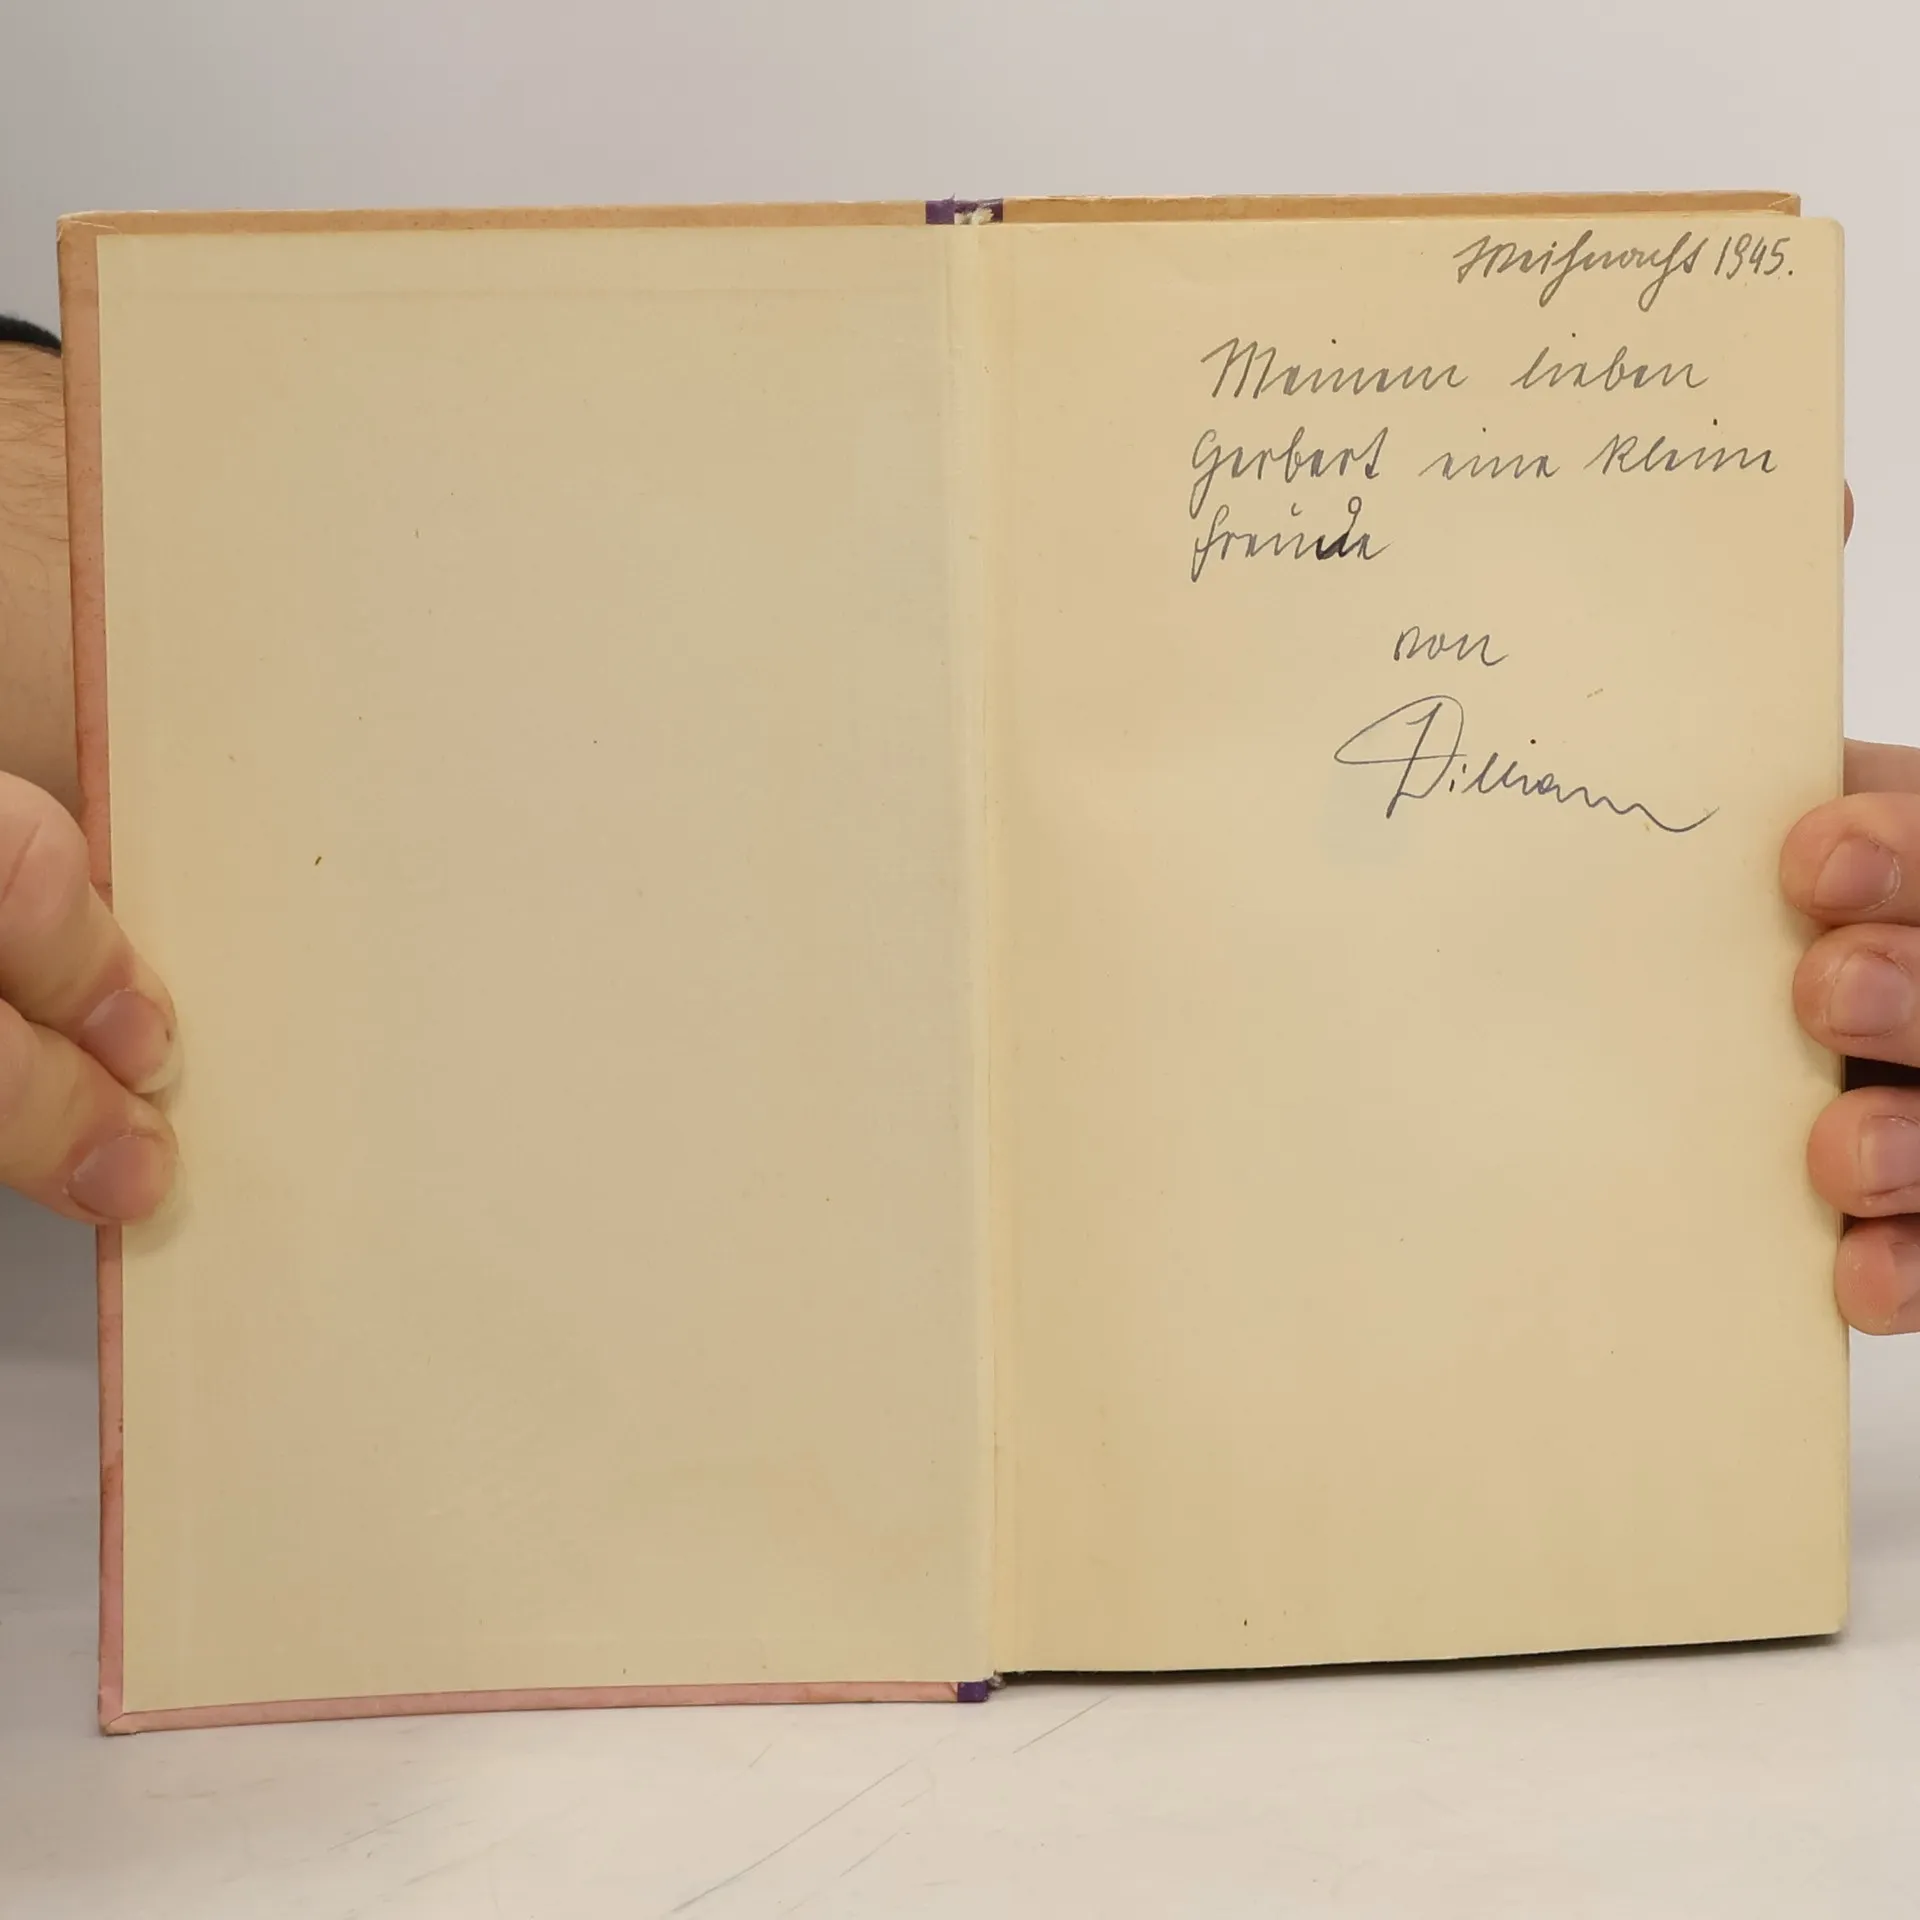 Weihnacht 1945.
Meinem lieben
Gerbert eine kleine
Freude
von